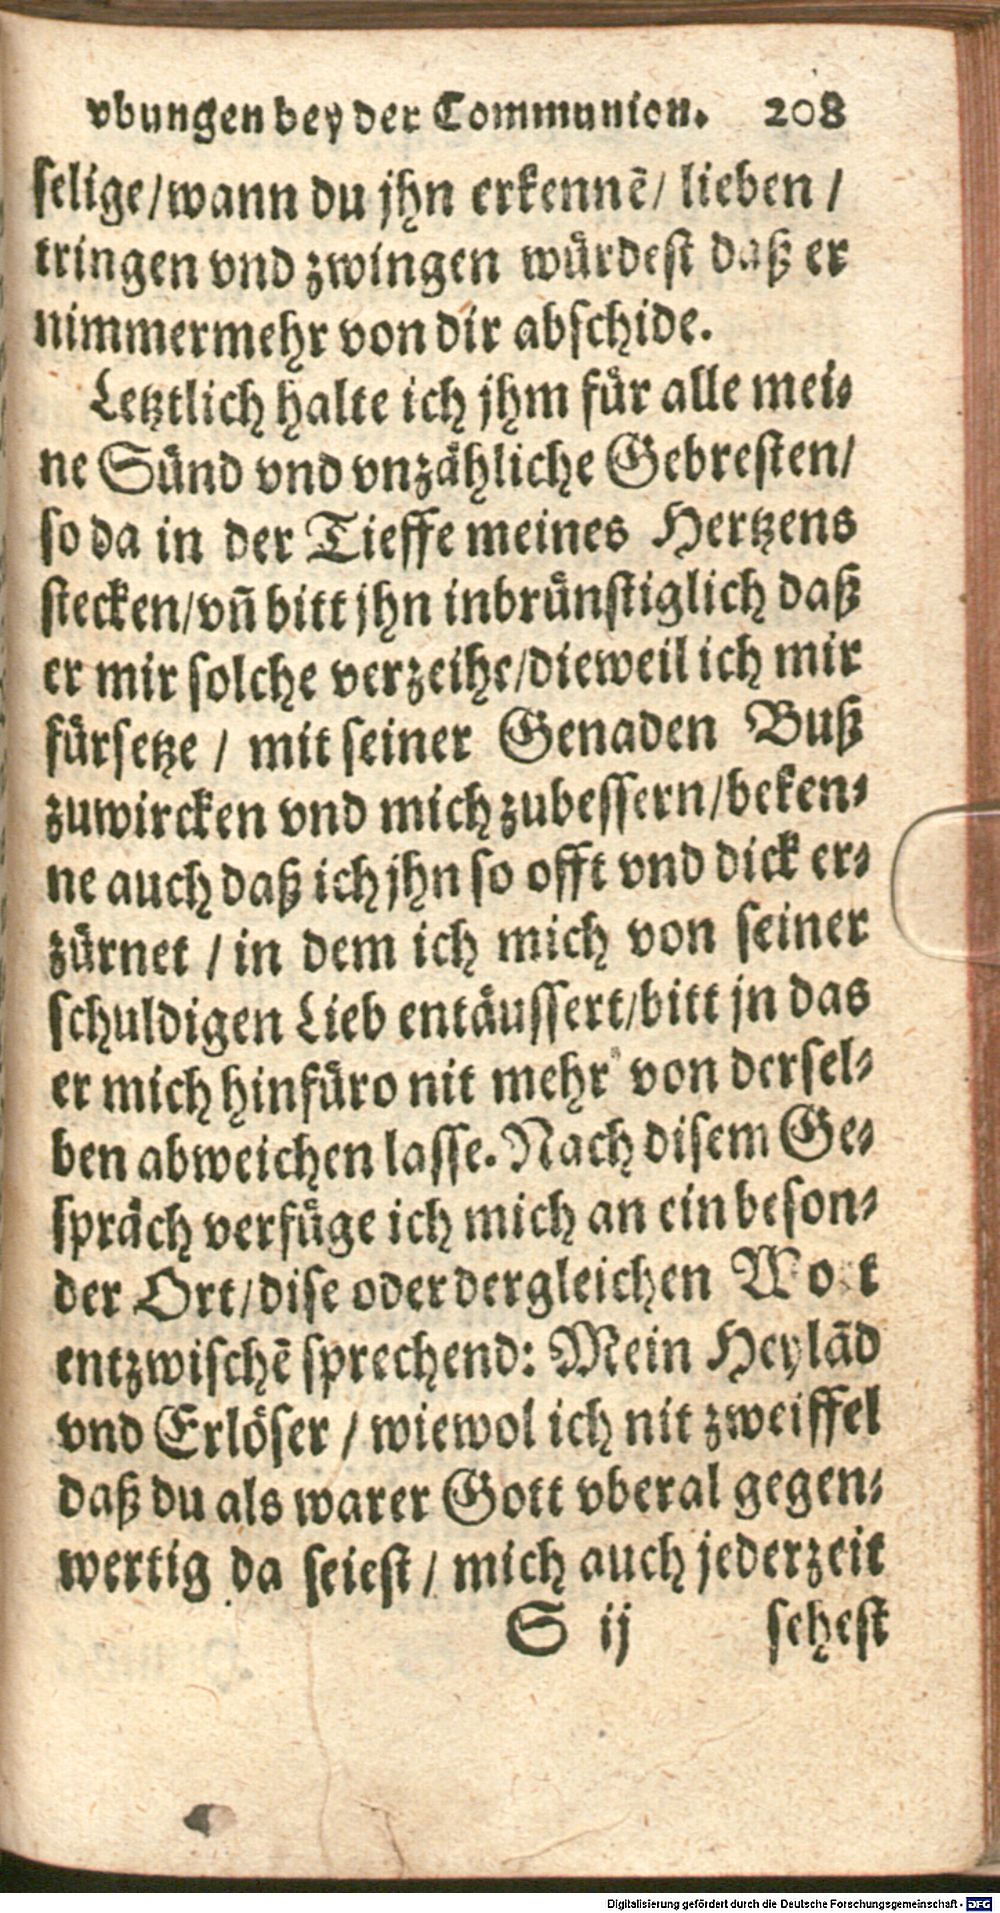 vbungen bey der Communion. 208
selige/wann du jhn erkennẽ/ lieben /
tringen vnd zwingen würdest daß er
nimmermehr von dir abschide.
Letztlich halte ich jhm für alle mei-
ne Sünd vnd vnzähliche Gebresten/
so da in der Tieffe meines Hertzens
stecken/vñ bitt jhn inbrünstiglich daß
er mir solche verzeihe/dieweil ich mir
fürsetze / mit seiner Genaden Buß
zuwircken vnd mich zubessern/beken-
ne auch daß ich jhn so offt vnd dick er-
zürnet / in dem ich mich von seiner
schuldigen Lieb entäussert/bitt jn das
er mich hinfüro nit mehr von dersel-
ben abweichen lasse. Nach disem Ge-
spräch verfüge ich mich an ein beson-
der Ort/dise oder dergleichen Wort
entzwischẽ sprechend: Mein Heylãd
vnd Erlöser / wiewol ich nit zweiffel
daß du als warer Gott vberal gegen-
wertig da seiest / mich auch jederzeit
S ij sehest
Digitalisierung gefördert durch die Deutsche Forschungsgemeinschaft - DFG